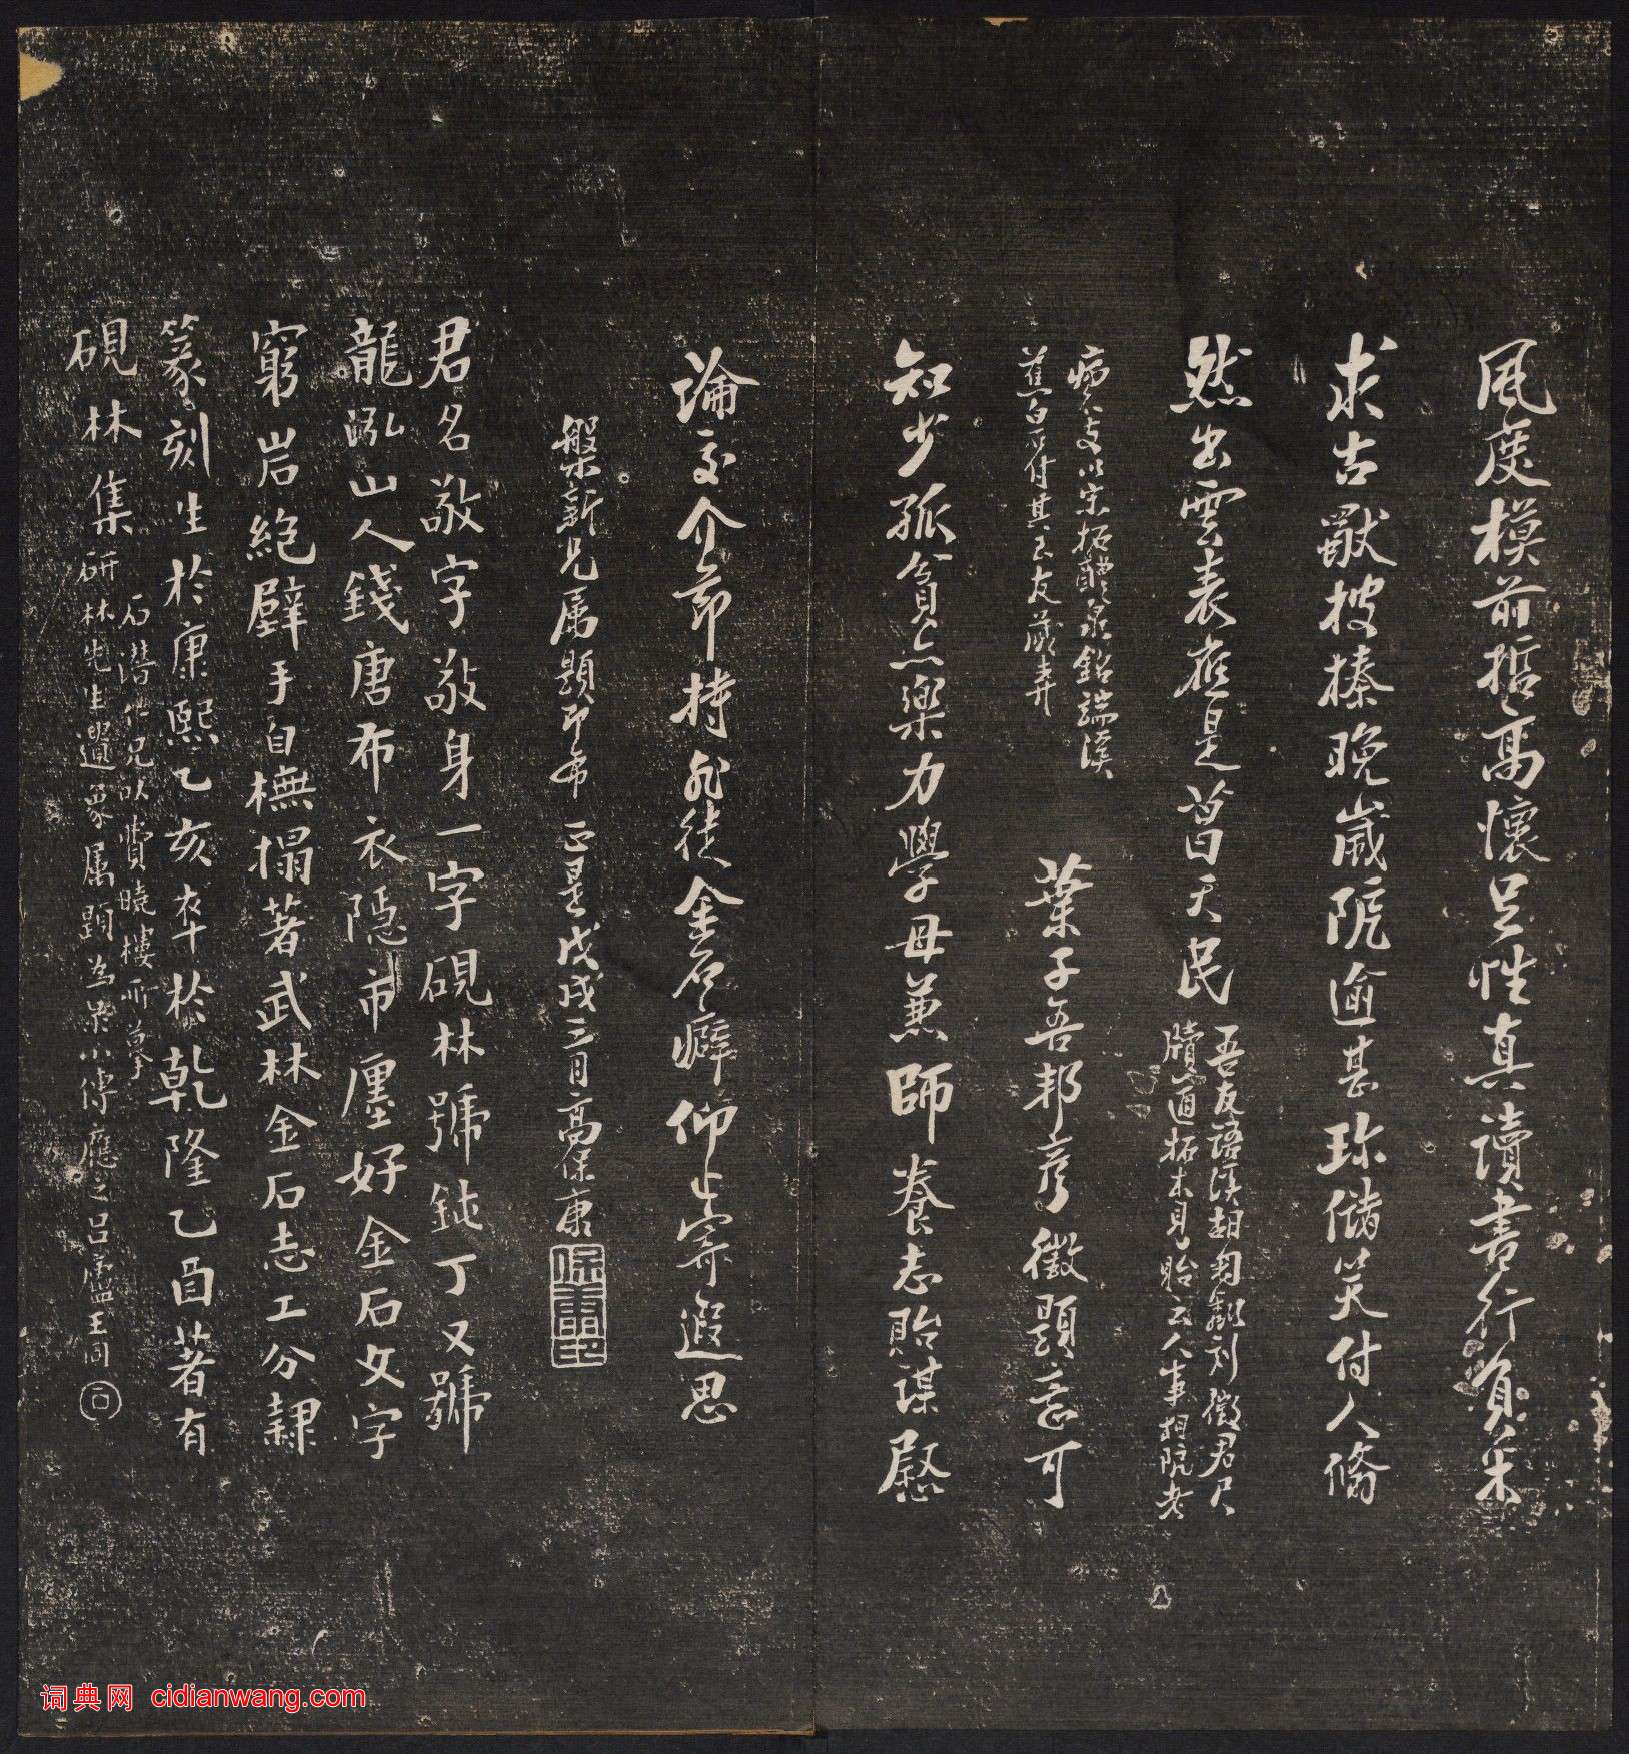 風度模前哲高懷足性真讀書行負米
求古獻披榛晚歲阮逾甚珎儲笑付人翛
然出雲表應是葛天民
吾友語溪胡匊鄰刻徵君尺
牘適拓本見貽云人事相阮老
病以宋拓醴泉銘端溪
蕉白付其至友藏弆
葉子吾邦彥徵題意可
知少孤貧亦樂力學母兼師養志貽謀慰
論交介節持非徒金石癖仰止寄遐思
槃新兄属題即希 正是戊戌三月高保康
君名敬字敬身一字硯林號鈍丁又號
龍泓山人錢唐布衣隱市廛好金石文字
窮岩絕壁手自橅搨著武林金石志工分隸
篆刻生於康熙乙亥卒於乾隆乙酉著有
硯林集
石潛仁兄以費曉樓所摹
研林先生遺象属題為録小傳應之吕廬王同
词典网 cidianwang.com